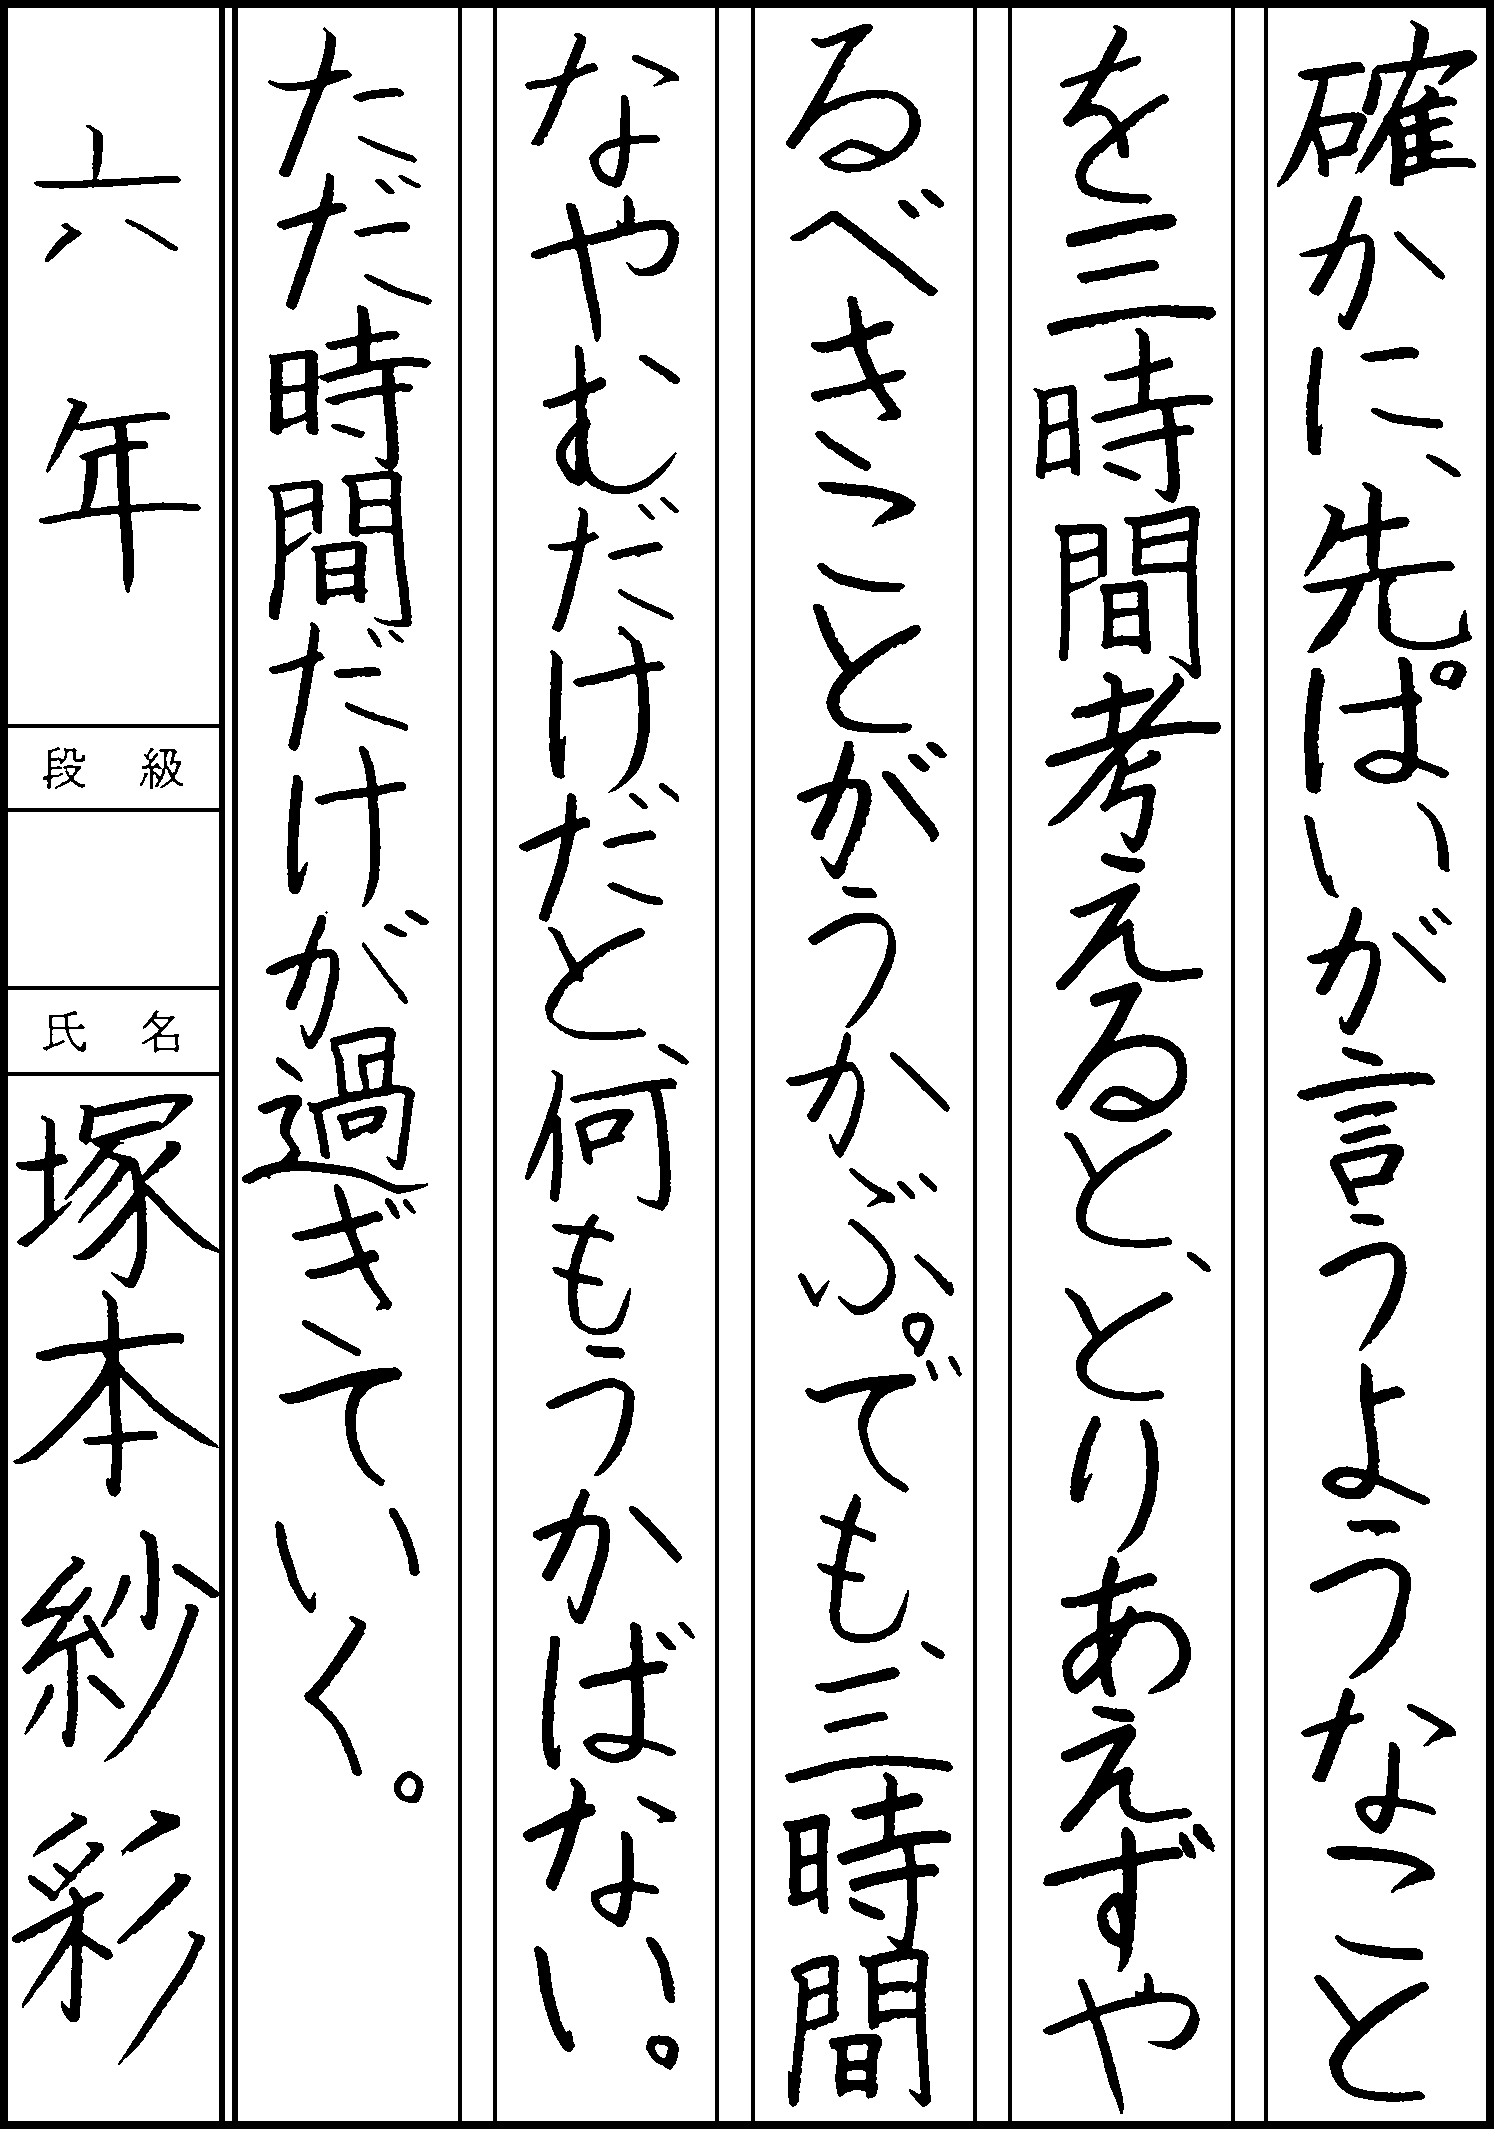 確かに、先ぱいが言うようなこと
を三時間考えると、とりあえずや
るべきことがうかぶ。でも、三時間
なやむだけだと、何もうかばない。
ただ時間だけが過ぎていく。
六年
段級
氏名
塚本紗彩